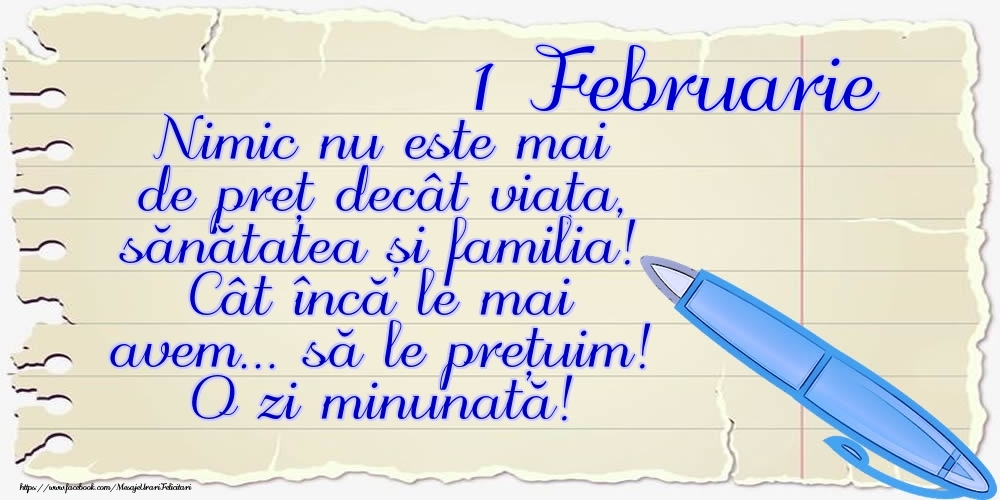 1 Februarie
Nimic nu este mai
de preț decât viața,
sănătatea și familia!
Cât încă le mai
avem... să le prețuim!
O zi minunată!
https://www.facebook.com/MesajeUrariFelicitari